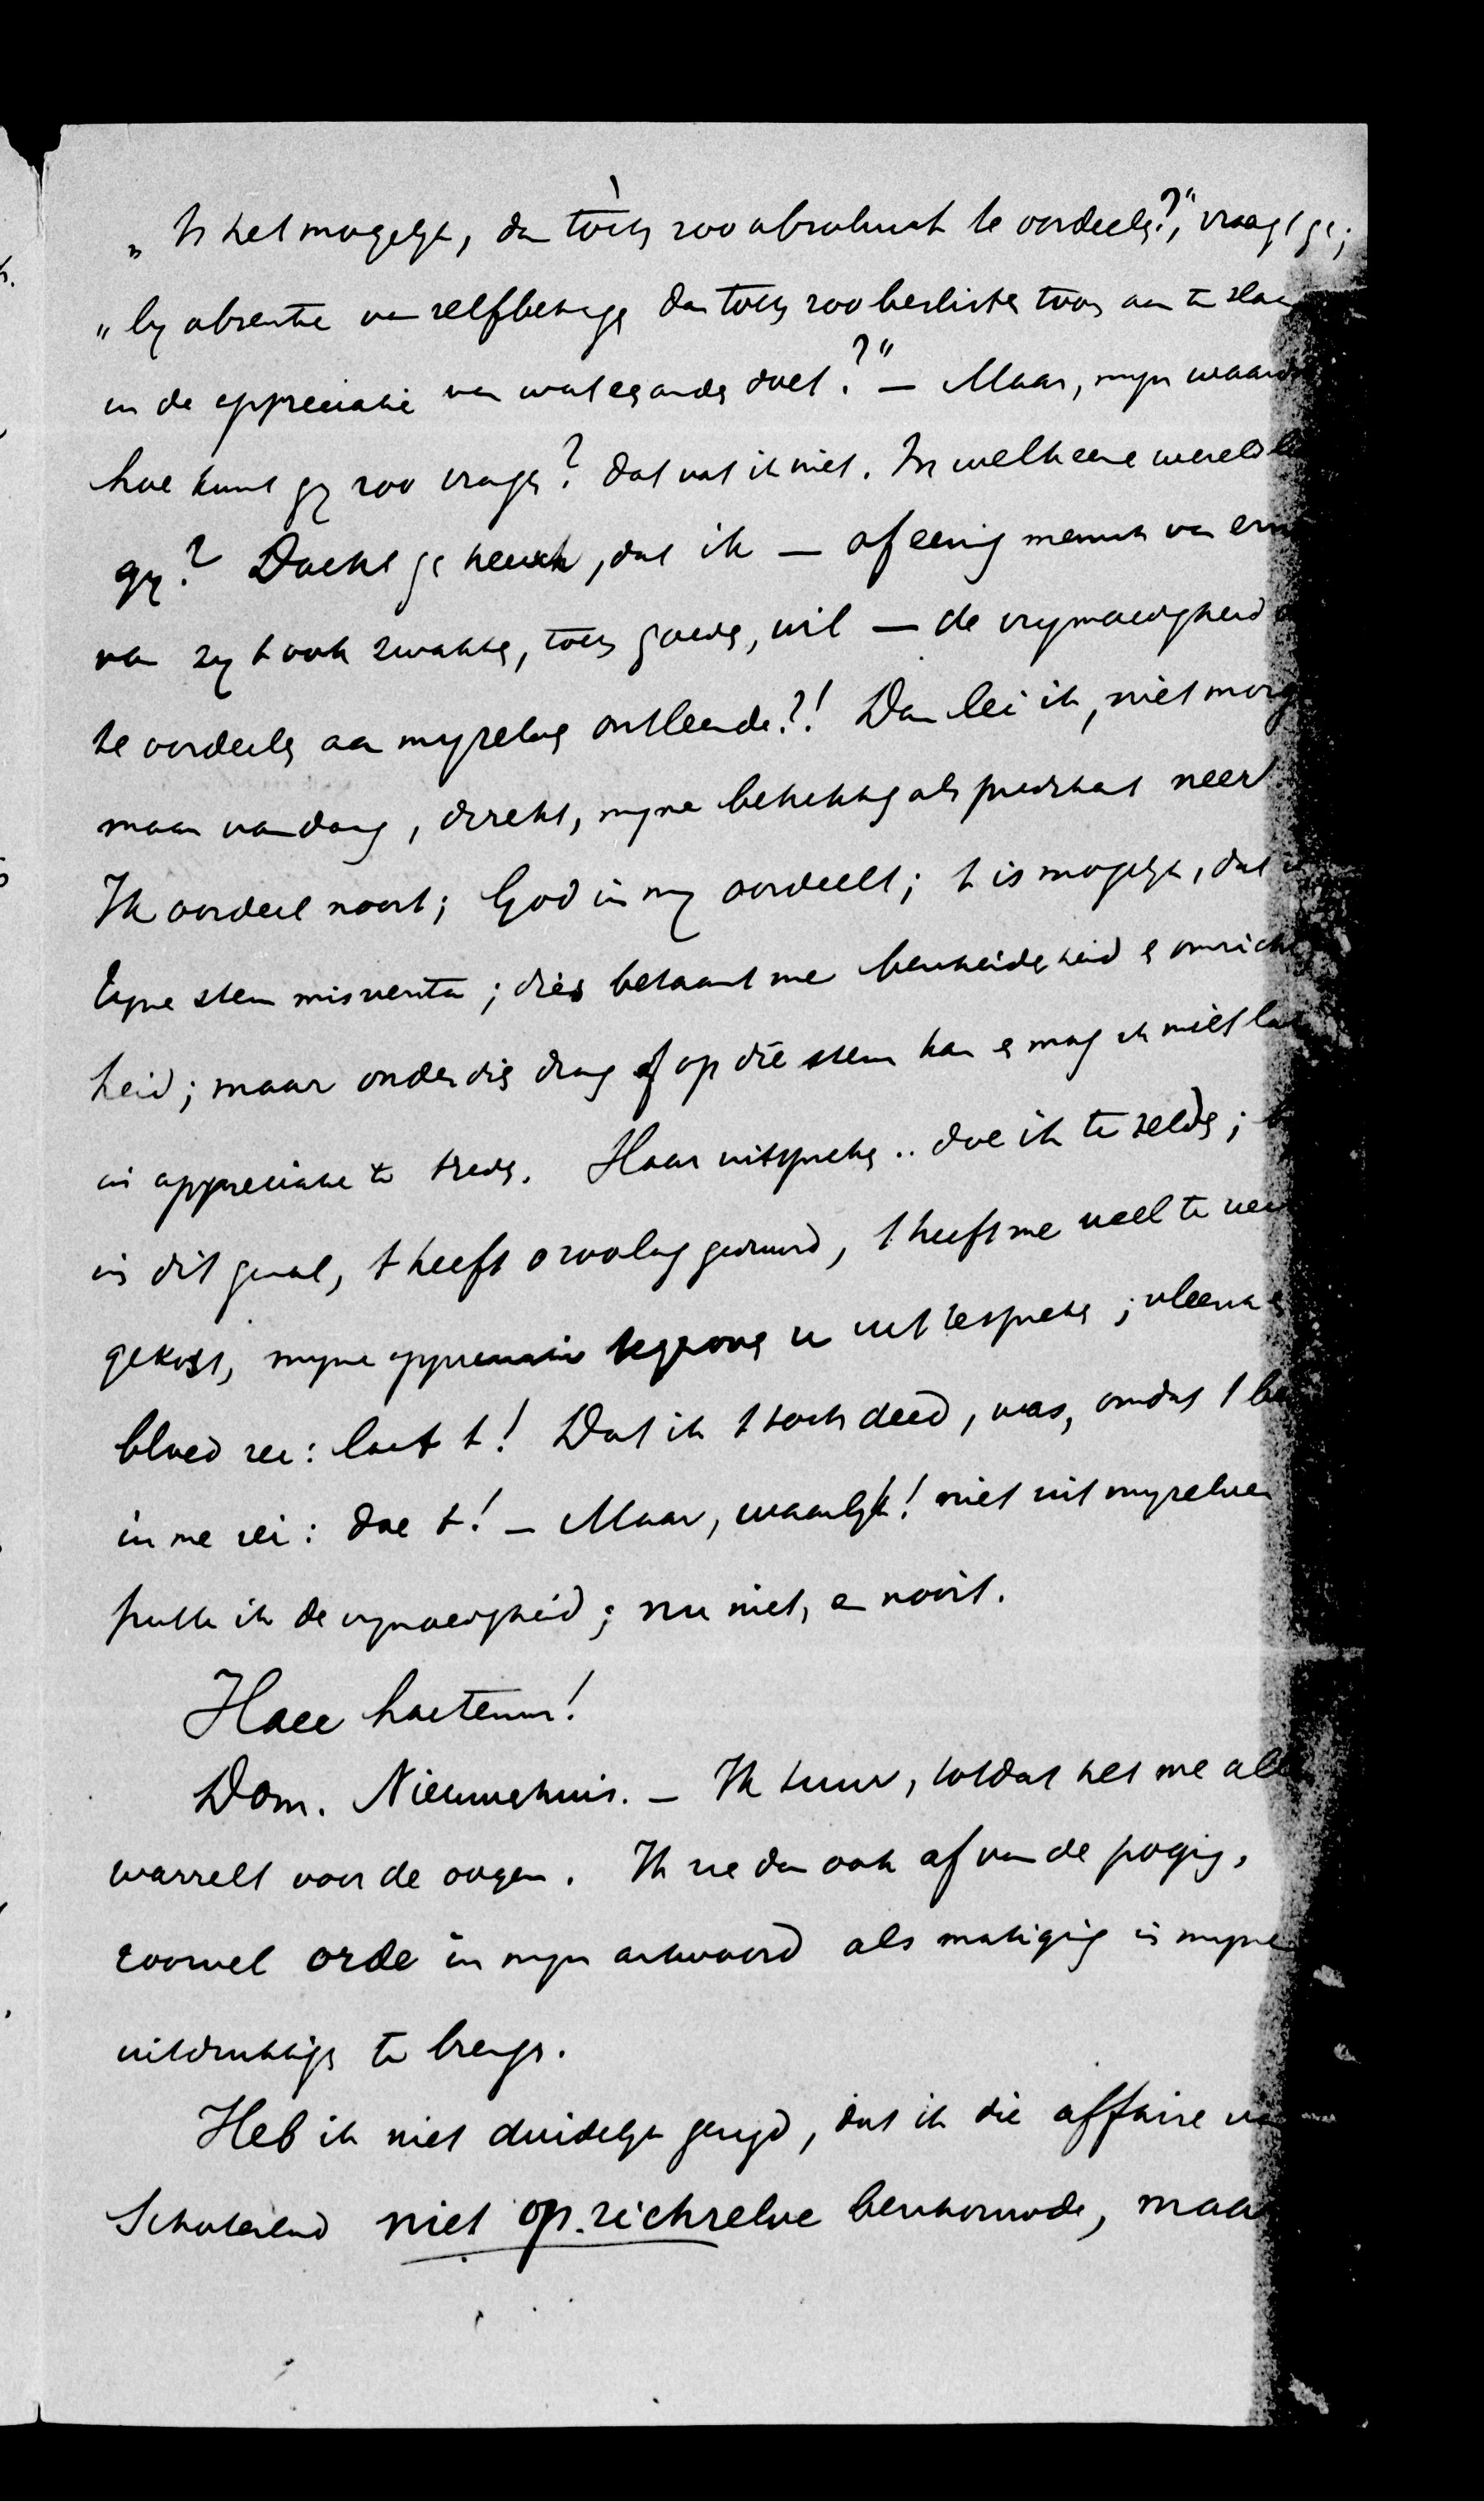 „Is het mogelyk, dan tòch zoo absoluut te oordeelen?", vraagt ge;
„by absentie van zelfbehagen dan toch zoo beslisten toon aan te slaan
in de appreciatie van wat een ander doet?" — Maar, myn waarde
hoe kunt gy zoo vragen? dat vat ik niet. In welk eene wereld
gy? Dacht ge heusch, dat ik — of eenig mensch van
van zy 't ook zwakken, toch goeden, wil — de vrymoedigheid
te oordeelen aan myzelven ontleende?! Dan lei ik, niet morgen
maar vandaag, direkt, myne betrekking als predikant neer.
Ik oordeel nooit; God in my oordeelt; 't is mogelyk, dat
Zyne stem misversta; dies betaamt me bescheidenheid en omzichtig
heid; maar onder dien drang of op die stem kan en mag ik niet
in appreciatie te treden. Haar uitspreken .. doe ik te zelden;
in dit geval, 't heeft zoolang geduurd, 't heeft me veel te veel
gekost, myne appreciatie tegenover u uit te spreken; vleesch en
bloed zei: laat 't! Dat ik 't toch deed, was, omdat 't
in me zei: doe 't! — Maar, waarlyk! niet uit myzelven
putte ik de vrymoedigheid; nu niet, en nooit.
Haec hactenus!
Dom. Nieuwenhuis. — Ik tuur, totdat het me alles
warrelt voor de oogen. Ik zie dan ook af van de poging,
zoowel orde in myn antwoord als matiging in myne
uitdrukkingen te brengen.
Heb ik niet duidelyk gezegd, dat ik die affaire van
Schoterland niet op zichzelve beschouwde, maar